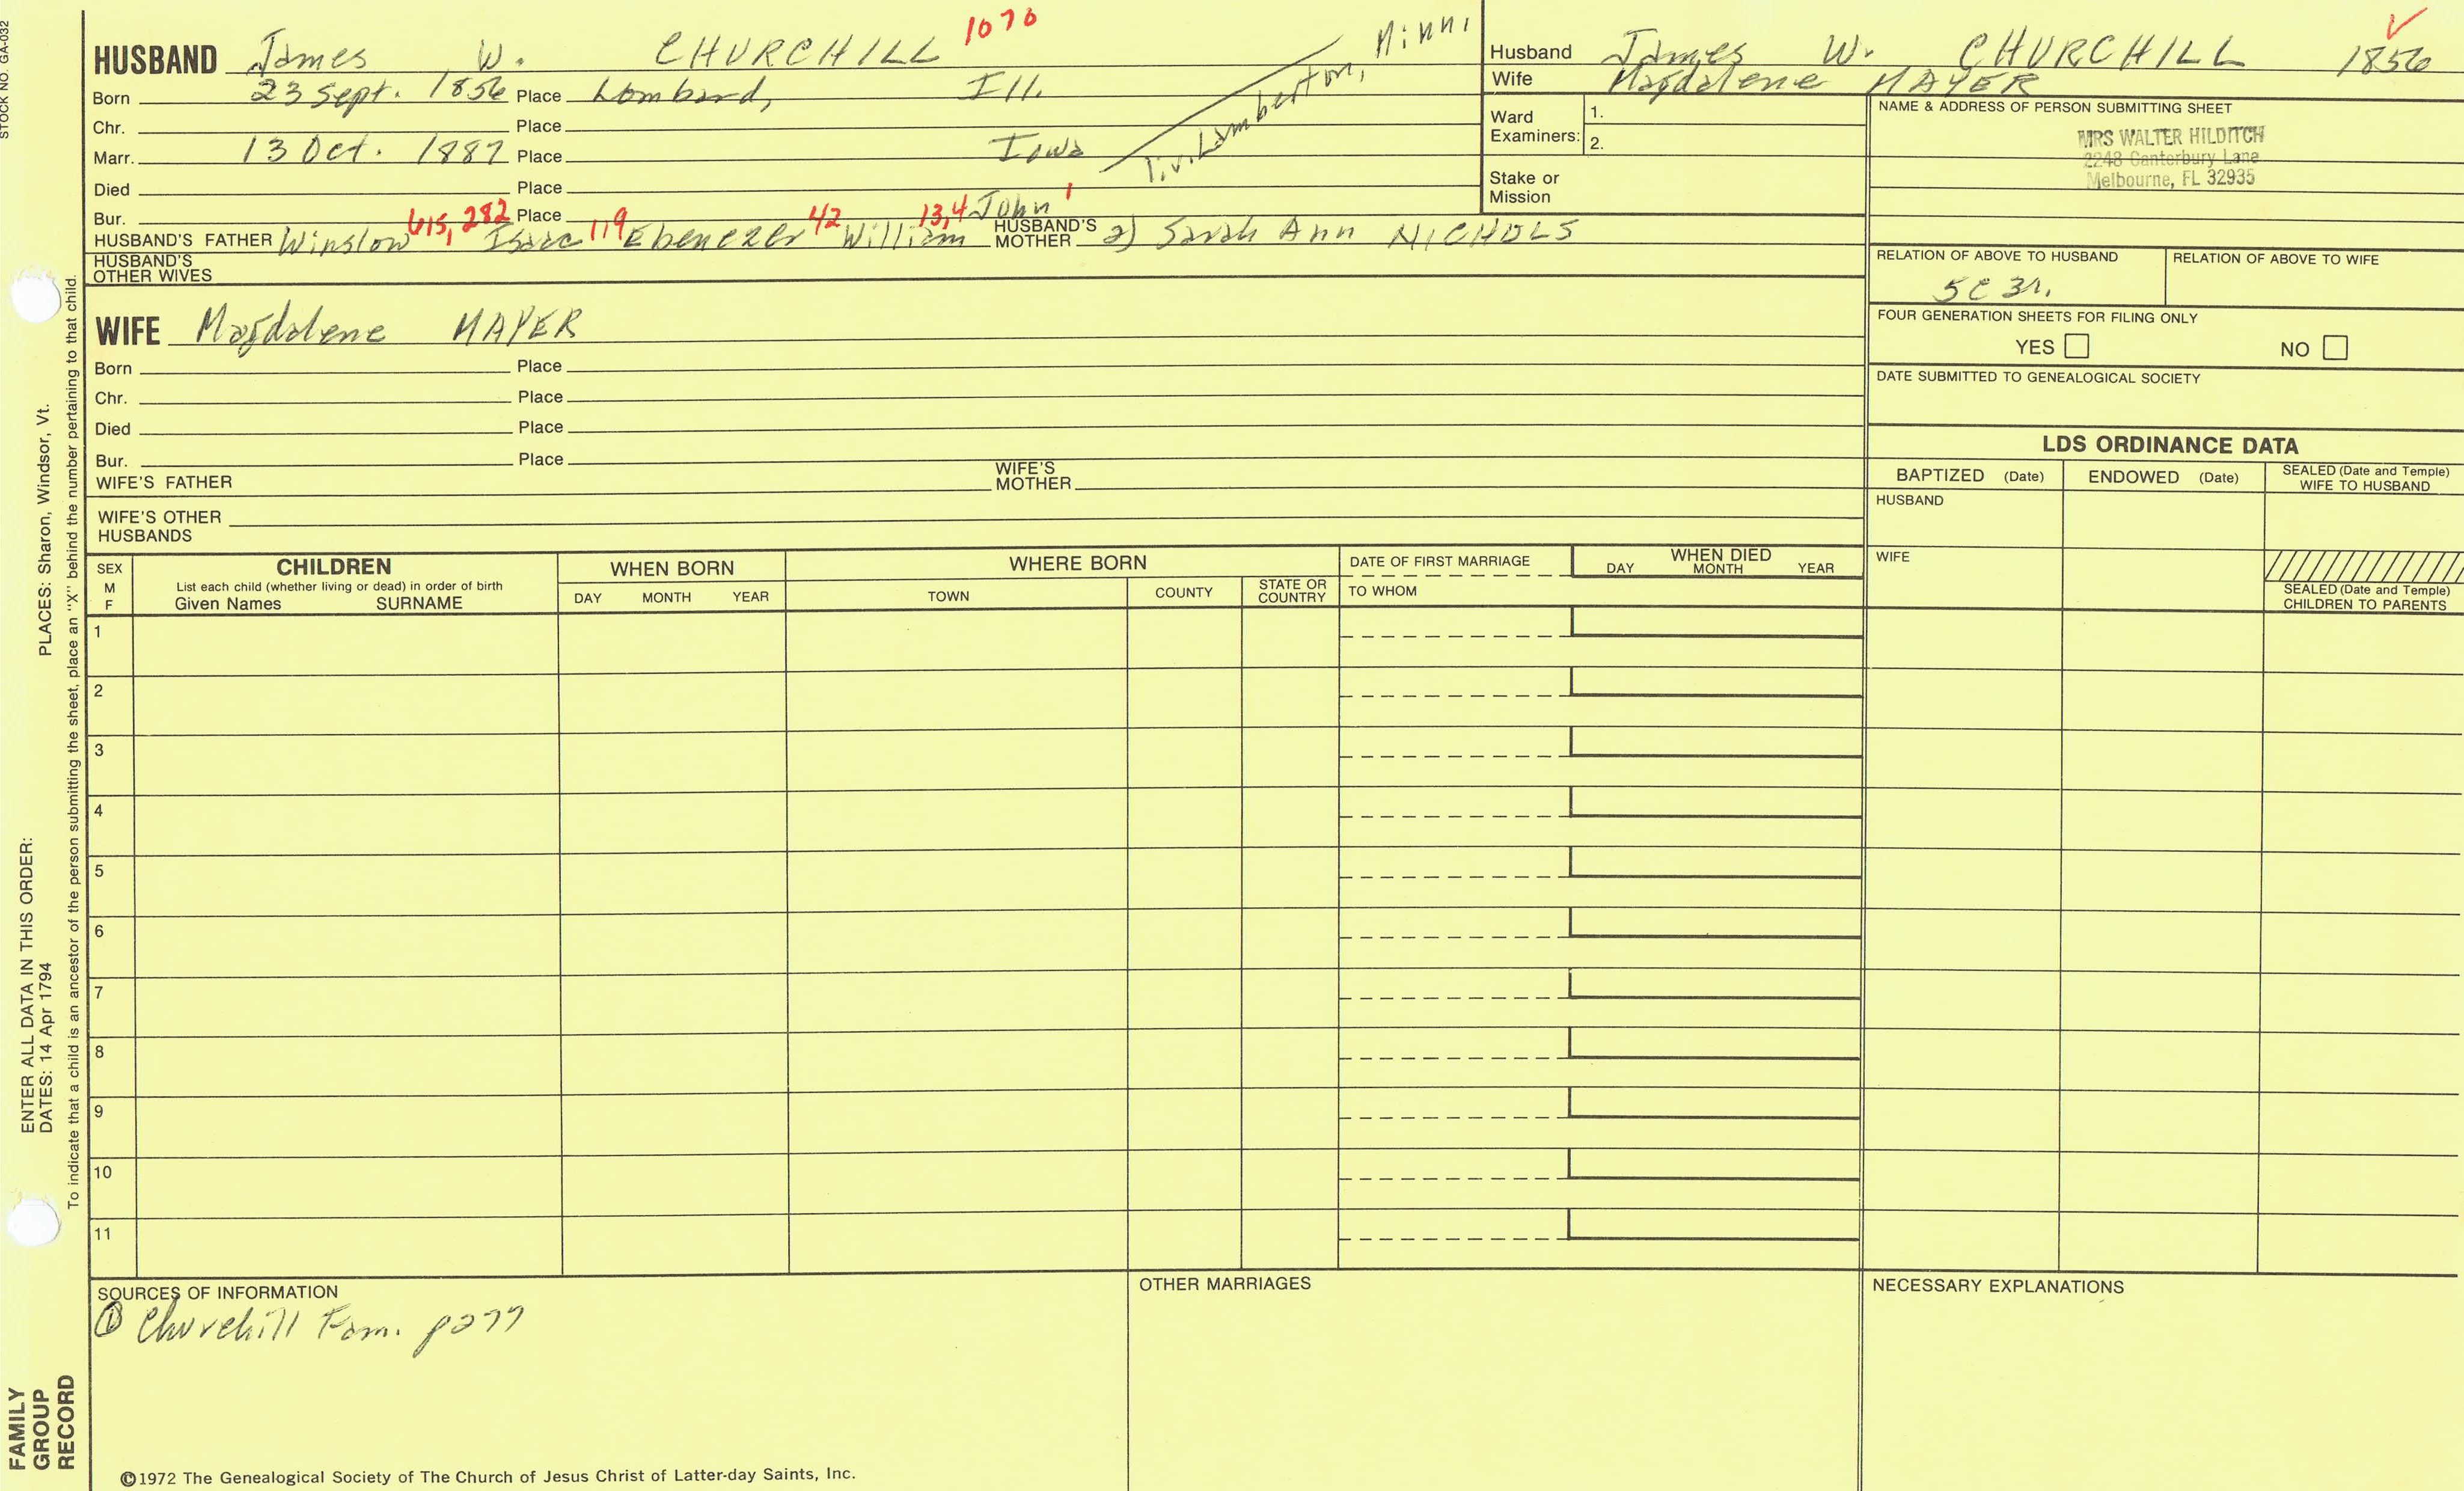 STOCK NO. GA-032
HUSBAND James W. CHURCHILL 1070
Born 23 Sept. 1856 Place Lombard, Ill.
Chr. Place
Marr. 13 Oct. 1887 Place Iowa
liv. Lamberton, Minn.
Died Place
Bur. Place
HUSBAND'S FATHER Winslow 615, 282 Isaac 119 Ebenezer 42 William 13,4 John 1 HUSBAND'S MOTHER 2) Sarah Ann NICHOLS
HUSBAND'S OTHER WIVES
WIFE Magdalene MAYER
Born Place
Chr. Place
Died Place
Bur. Place
WIFE'S FATHER WIFE'S MOTHER
WIFE'S OTHER HUSBANDS
Husband James W. CHURCHILL 1856
Wife Magdalene MAYER
Ward Examiners: 1.
2.
Stake or Mission
NAME & ADDRESS OF PERSON SUBMITTING SHEET
MRS WALTER HILDITCH
2248 Canterbury Lane
Melbourne, FL 32935
RELATION OF ABOVE TO HUSBAND RELATION OF ABOVE TO WIFE
5C 3r.
FOUR GENERATION SHEETS FOR FILING ONLY
YES NO
DATE SUBMITTED TO GENEALOGICAL SOCIETY
LDS ORDINANCE DATA
BAPTIZED (Date) ENDOWED (Date) SEALED (Date and Temple) WIFE TO HUSBAND
HUSBAND
WIFE
SEALED (Date and Temple) CHILDREN TO PARENTS
SEX M F
CHILDREN
List each child (whether living or dead) in order of birth
Given Names SURNAME
WHEN BORN
DAY MONTH YEAR
WHERE BORN
TOWN COUNTY STATE OR COUNTRY
DATE OF FIRST MARRIAGE
TO WHOM
WHEN DIED
DAY MONTH YEAR
1
2
3
4
5
6
7
8
9
10
11
SOURCES OF INFORMATION
① Churchill Fam. p277
OTHER MARRIAGES
NECESSARY EXPLANATIONS
©1972 The Genealogical Society of The Church of Jesus Christ of Latter-day Saints, Inc.
ENTER ALL DATA IN THIS ORDER:
DATES: 14 Apr 1794 PLACES: Sharon, Windsor, Vt.
To indicate that a child is an ancestor of the person submitting the sheet, place an "X" behind the number pertaining to that child.
FAMILY
GROUP
RECORD